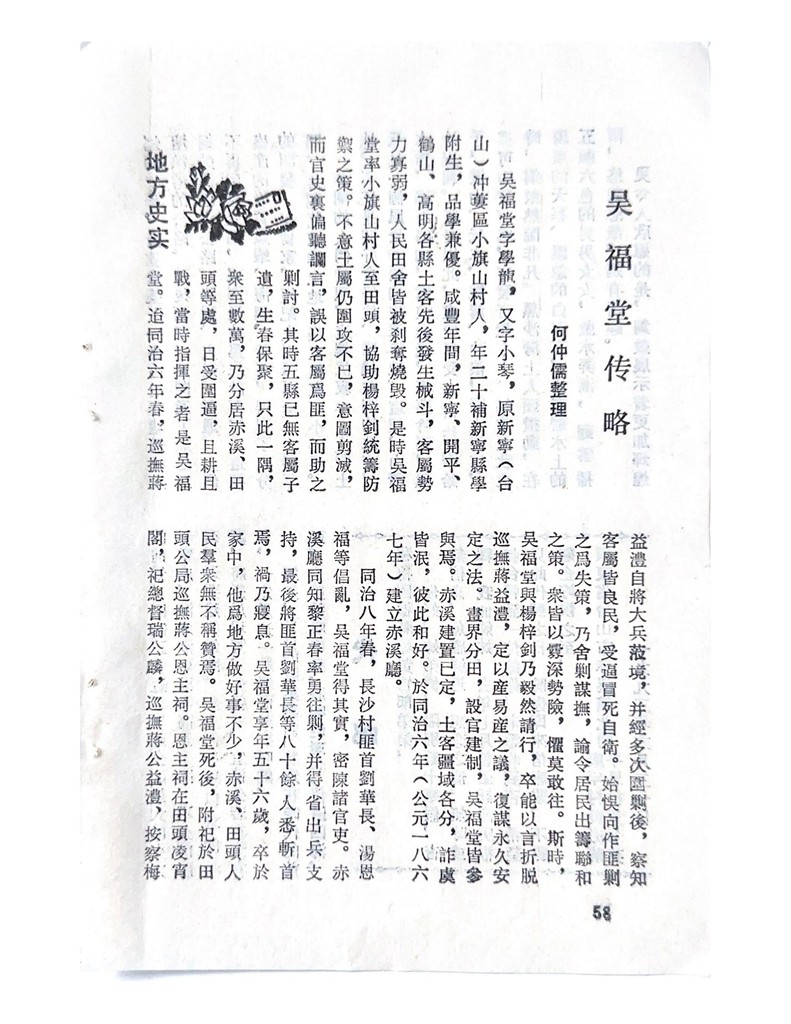 地方史实
吴福堂传略
何仲儒整理
吴福堂字學龍，又字小琴，原新寧（台
山）冲蔞區小旗山村人，年二十補新寧縣學
附生，品學兼優。咸豐年間，新寧、開平、
鶴山、高明各縣土客先後發生械斗，客屬勢
力寡弱，人民田舍皆被刹奪燒毁。是時吴福
堂率小旗山村人至田頭，協助楊梓釗統籌防
禦之策。不意土屬仍圍攻不已，意圖剪滅，
而官史裏偏聽讕言，誤以客屬爲匪，而助之
剿討。其時五縣已無客屬孑
遺，生春保聚，只此一隅，
衆至數萬，乃分居赤溪、田
頭等處，日受圍逼，且耕且
戰，當時指揮之者是吴福
堂。迨同治六年春，巡撫蔣
益澧自將大兵蒞境，并經多次圍剿後，察知
客屬皆良民，受逼冒死自衛。始悮向作匪剿
之爲失策，乃舍剿謀撫，諭令居民出籌聯和
之策。衆皆以釁深勢險，懼莫敢往。斯時，
吴福堂與楊梓釗乃毅然請行，卒能以言折脱
巡撫蔣益澧，定以産易産之議，復謀永久安
定之法。畫界分田，設官建制，吴福堂皆參
與焉。赤溪建置已定，土客疆域各分，詐虞
皆泯，彼此和好。於同治六年（公元一八六
七年）建立赤溪廳。
同治八年春，長沙村匪首劉華長、湯恩
福等倡亂，吴福堂得其實，密陳諸官吏。赤
溪廳同知黎正春率勇往剿，并得省出兵支
持，最後將匪首劉華長等八十餘人悉斬首
焉，禍乃寢息。吴福堂享年五十六歲，卒於
家中，他爲地方做好事不少，赤溪、田頭人
民羣衆無不稱贊焉。吴福堂死後，附祀於田
頭公局巡撫蔣公恩主祠。恩主祠在田頭凌宵
閣，祀總督瑞公麟，巡撫蔣公益澧，按察梅
58